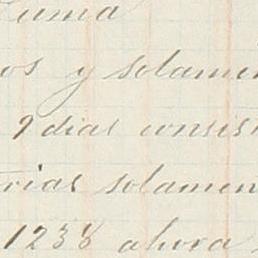 uma
os y solamen
9 dias consis
rias solamen
1238 ahora